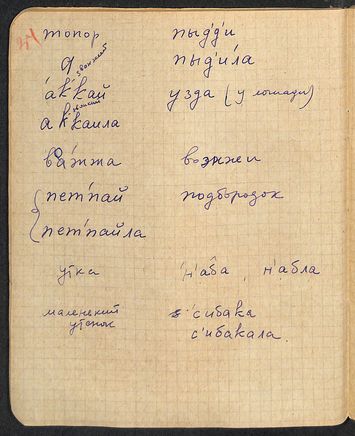 топор пыд'д'и
пыд'и́ла
а́к'кай узда (у лошади)
звонкий
ак'каила
ва́жжа вожжи
пет'пай подбородок
пет'пайла
утка н'аба, н'абла
маленький с'ибака
утенок с'ибакала.